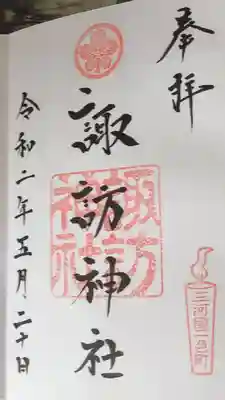 奉拝
三河国一色町
諏訪神社
諏訪
神社
令和二年五月二十日